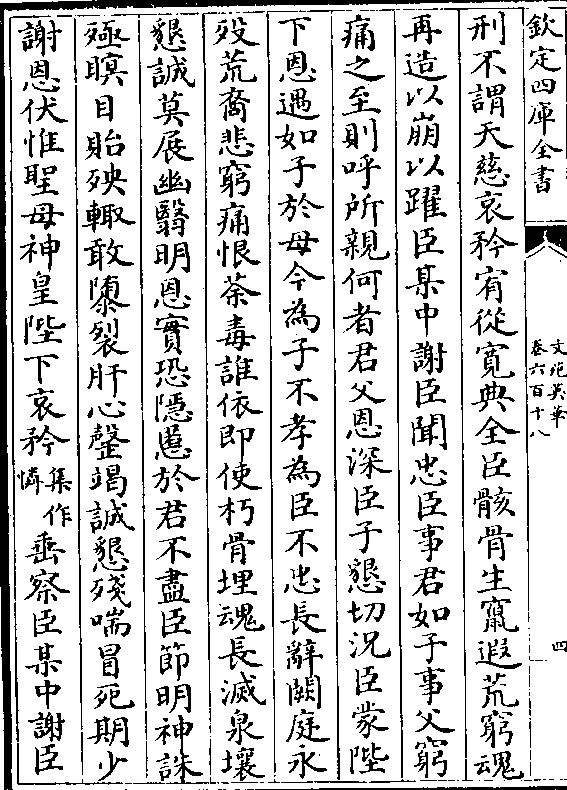 欽定四庫全書
文苑英華
卷六百十八
四
刑不謂天慈哀矜宥從寛典全臣骸骨生竄遐荒窮魂
再造以崩以躍臣某中謝臣聞忠臣事君如子事父窮
痛之至則呼所親何者君父恩深臣子懇切況臣蒙陛
下恩遇如子於母今為子不孝為臣不忠長辭闕庭永
殁荒裔悲窮痛恨荼毒誰依即使朽骨埋魂長滅泉壤
懇誠莫展幽翳明恩實恐隱慝於君不盡臣節明神誅
殛瞑目貽殃輙敢隳裂肝心罄竭誠懇殘喘冒死期少
謝恩伏惟聖母神皇陛下哀矜集作憐垂察臣某中謝臣